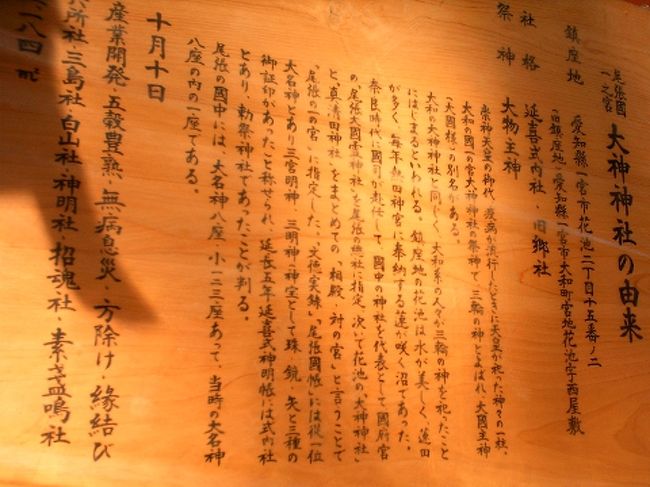 尾張國一之宮
大神神社の由来
鎮座地 愛知縣一宮市花池二丁目十五番ノ二
(旧鎮座地・愛知縣一宮市大和町宮地花池字西屋敷
社格 延喜式内社・旧郷社
祭神 大物主神
崇神天皇の御代、疫病が流行したときに天皇が祀った神々の一柱。
大和の国一の宮大神神社の祭神で、三輪の神ともよばれ、大國主神
(大國様)の別名がある。
大和の大神神社と同じく、大和系の人々が三輪の神を祀ったこと
にはじまるといわれる。鎮座地の花池は水が美しく、蓮田
が多く、毎年熱田神宮に奉納する蓮が咲く沼であった。
奈良時代に國司が赴任して、國中の神社を代表として國府宮
の尾張大國霊神社を尾張の總社に指定、次いで花池の大神神社
と、真清田神社をまとめての「相殿・対の宮」と言うことで
「尾張の一の宮」に指定した。「文徳実録」尾張國帳には從一位
大名神とあり三宮明神・三明神・神宝として珠・鏡・矢と三種の
御証印があったと称せられ、延長五年延喜式神明帳には式内社
とあり、勅祭神社であったことが判る。
尾張の國中には、大名神八座・小一二三座あって、当時の大名神
八座の内の一座である。
十月十日
産業開発・五穀豊熟・無病息災・方除け・縁結び
六所社・三島社・白山社・神明社・招魂社・素盞鳴社
八四㎡